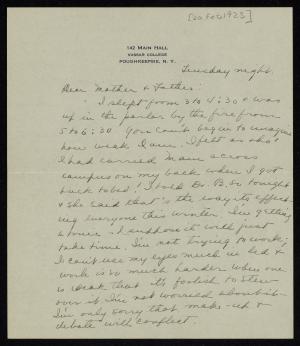 [20 Feb 1923]
142 MAIN HALL
VASSAR COLLEGE
POUGHKEEPSIE, N. Y.
Tuesday night.
Dear Mother & Father:
I slept from 3 to 4:30 & was
up in the parlor by the fire from
5 to 6:30. You can't begin to imagine
how weak I am. I felt as tho'
I had carried Main across
campus on my back when I got
back to bed! I told Dr. B. so tonight
& she said that's the way its affect-
ing everyone this winter. I'm getting
stronger & suppose it will just
take time. I'm not trying to work;
I can't use my eyes much in bed &
work is so much harder when one
is weak that it's foolish to stew
over it. I'm not worried about it-
I'm only sorry that make-up &
debate will conflict.